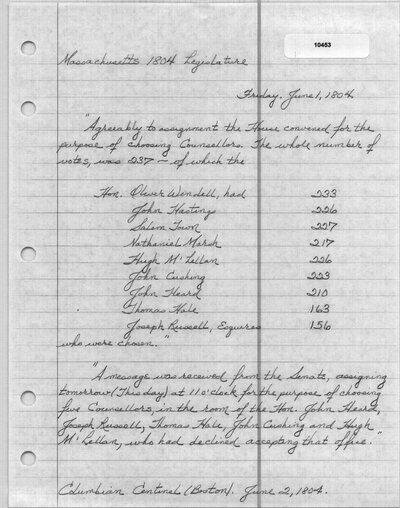 10453
Massachusetts 1804 Legislature
Friday. June 1, 1804.
"Agreeably to assignment the House convened for the
purpose of choosing Counsellors. The whole number of
votes, was 237 — of which the
Hon. Oliver Wendell, had 233
John Hastings 226
Salem Town 227
Nathaniel Marsh 217
Hugh M'Lellan 226
John Cushing 223
John Heard 210
Thomas Hale 163
Joseph Russell, Esquires 156
who were chosen."
"A message was received from the Senate, assigning
tomorrow (This day) at 11 o'clock for the purpose of choosing
five Counsellors, in the room of the Hon. John Heard,
Joseph Russell, Thomas Hale, John Cushing and Hugh
M'Lellan, who had declined accepting that office."
Columbian Centinel (Boston). June 2, 1804.